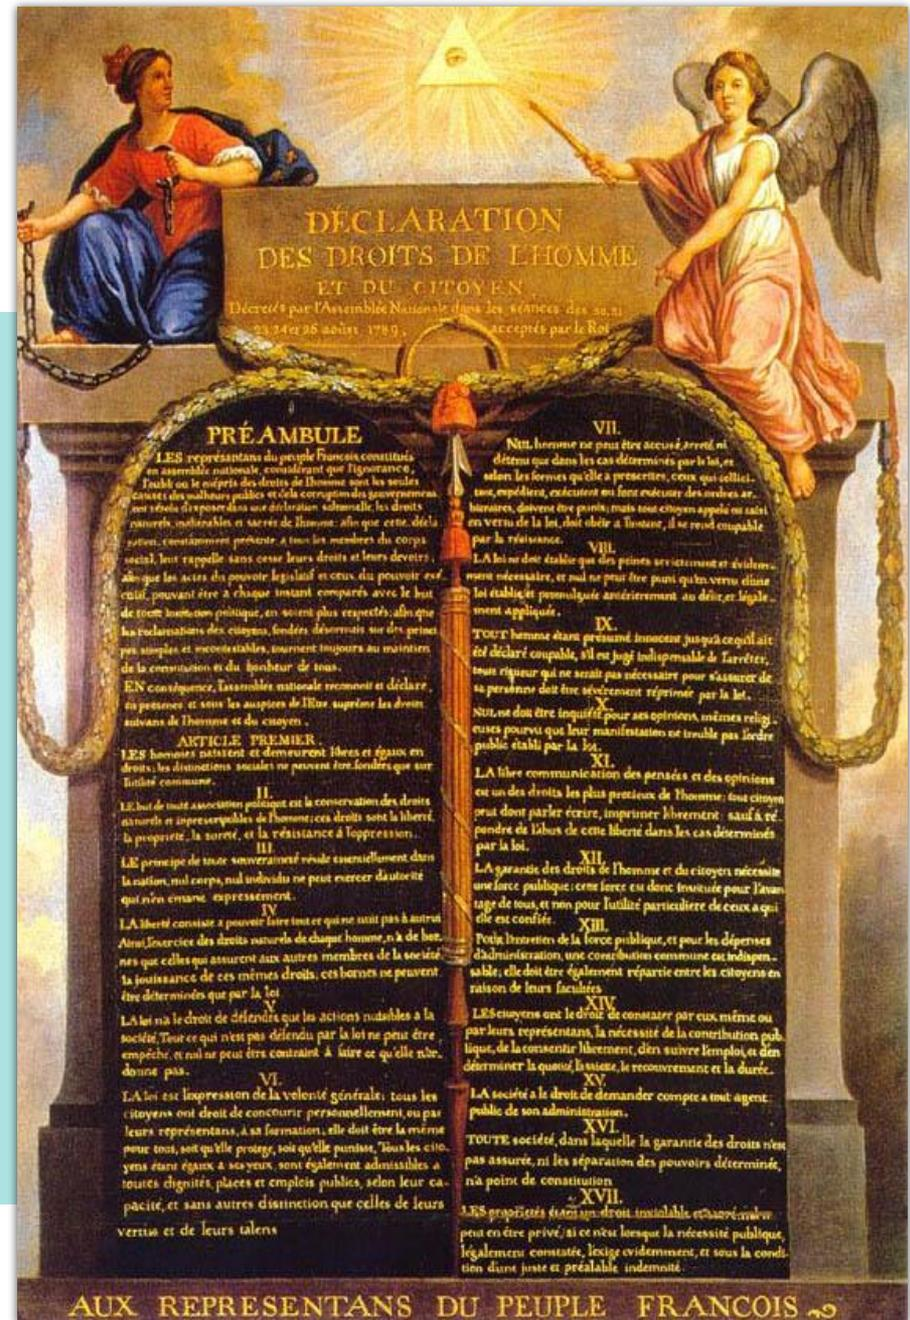 DÉCLARATION
DES DROITS DE LHOMME
ET DU CITOYEN
Décretés par l'Assemblée Nationale dans les séances des 20, 21
23 24 et 26 août 1789, acceptés par le Roi
PRÉAMBULE
LES représantans du peuple Francois, constitués
en assemblée nationale, considérant que l'ignorance,
l'oubli ou le mépris des droits de l'homme sont les seules
causes des malheurs publics et de la corruption des gouvernemens
ont résolu d'exposer dans une déclaration solemnelle, les droits
naturels, inaliénables et sacrés de l'homme; afin que cette décla
ration, constamment présente a tous les membres du corps
social, leur rappelle sans cesse leurs droits et leurs devoirs,
afin que les actes du pouvoir legislatif et ceux du pouvoir exé
cutif, pouvant être à chaque instant comparés avec le but
de toute institution politique, en soient plus respectés; afin que
les reclamations des citoyens, fondées désormais sur des princi
pes simples et incontestables, tournent toujours au maintien
de la constitution et du bonheur de tous.
EN conséquence, l'assemblée nationale reconnoit et déclare,
en presence et sous les auspices de l'Etre suprême les droits
suivans de l'homme et du citoyen.
ARTICLE PREMIER.
LES hommes naissent et demeurent libres et égaux en
droits; les distinctions sociales ne peuvent être fondées que sur
l'utilité commune.
II.
LE but de toute association politique est la conservation des droits
naturels et imprescriptibles de l'homme; ces droits sont la liberté,
la proprieté, la sureté, et la résistance à l'oppression.
III.
LE principe de toute souveraineté réside essentiellement dans
la nation, nul corps, nul individu ne peut exercer d'autorité
qui n'en emane expressement.
IV.
LA liberté consiste a pouvoir faire tout ce qui ne nuit pas à autrui
Ainsi, l'exercice des droits naturels de chaque homme, n'a de bor
nes que celles qui assurent aux autres membres de la société
la jouissance de ces mêmes droits; ces bornes ne peuvent
être déterminées que par la loi
V.
LA loi n'a le droit de défendre que les actions nuisibles a la
société. Tout ce qui n'est pas défendu par la loi ne peut être
empêché, et nul ne peut être contraint à faire ce qu'elle n'or-
donne pas.
VI.
LA loi est l'expression de la volonté générale; tous les
citoyens ont droit de concourir personnellement, ou par
leurs représentans, à sa formation; elle doit être la même
pour tous, soit qu'elle protege, soit qu'elle punisse, Tous les cito-
yens étant égaux à ses yeux, sont également admissibles à
toutes dignités, places et emplois publics, selon leur ca-
pacité, et sans autres distinction que celles de leurs
vertus et de leurs talens
VII.
NUL homme ne peut être accusé, arreté, ni
détenu que dans les cas déterminés par la loi, et
selon les formes qu'elle a prescrites, ceux qui sollici-
tent, expédient, exécutent ou font exécuter des ordres ar-
bitraires, doivent être punis; mais tout citoyen appelé ou saisi
en vertu de la loi, doit obéir a l'instant, il se rend coupable
par la résistance.
VIII.
LA loi ne doit établir que des peines strictement et évidem-
ment nécessaire, et nul ne peut être puni qu'en vertu d'une
loi établie et promulguée antérierement au délit, et légale-
ment appliquée.
IX.
TOUT homme étant présumé innocent jusqu'à ce qu'il ait
été déclaré coupable, s'il est jugé indispensable de l'arrêter,
toute rigueur qui ne serait pas nécessaire pour s'assurer de
sa personne doit être sévèrement réprimée par la loi.
X.
NUL ne doit être inquiété pour ses opinions, mêmes religi-
euses pourvu que leur manifestation ne trouble pas l'ordre
public établi par la loi.
XI.
LA libre communication des pensées et des opinions
est un des droits les plus precieux de l'homme; tout citoyen
peut dont parler écrire, imprimer librement: sauf à ré-
pondre de l'abus de cette liberté dans les cas déterminés
par la loi.
XII.
LA garantie des droits de l'homme et du citoyen nécessite
une force publique: cette force est donc instituée pour l'avan
tage de tous, et non pour l'utilité particuliere de ceux a qui
elle est confiée.
XIII.
Pour l'entretien de la force publique, et pour les dépenses
d'administration, une contribution commune est indispen-
sable; elle doit être également répartie entre les citoyens en
raison de leurs facultées
XIV.
LES citoyens ont le droit de constater par eux même ou
par leurs représentans, la nécessité de la contribution pub-
lique, de la consentir librement, d'en suivre l'emploi, et d'en
déterminer la quotité, l'assiete, le recouvrement et la durée.
XV.
LA société a le droit de demander compte a tout agent
public de son administration.
XVI.
TOUTE société, dans laquelle la garantie des droits n'est
pas assurée, ni les séparation des pouvoirs déterminée,
n'a point de constitution
XVII.
LES propriétés étant un droit inviolable et sacré, nul ne
peut en être privé, si ce n'est lorsque la nécessité publique,
légalement constatée, l'exige evidemment, et sous la condi-
tion d'une juste et préalable indemnité.
AUX REPRESENTANS DU PEUPLE FRANCOIS